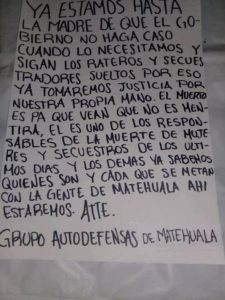 YA ESTAMOS HASTA
LA MADRE DE QUE EL GO-
BIERNO NO HAGA CASO
CUANDO LO NECESITAMOS Y
SIGAN LOS RATEROS Y SECUES
TRADORES SUELTOS POR ESO
YA TOMAREMOS JUSTICIA POR
NUESTRA PROPIA MANO. EL MUERTO
ES PA QUE VEAN QUE NO ES MEN-
TIRA, EL ES UNO DE LOS RESPON-
SABLES DE LA MUERTE DE MUJE
RES Y SECUESTROS DE LOS ULTI-
MOS DIAS Y LOS DEMAS YA SABEMOS
QUIENES SON Y CADA QUE SE METAN
CON LA GENTE DE MATEHUALA AHI
ESTAREMOS. ATTE.
GRUPO AUTODEFENSAS DE MATEHUALA